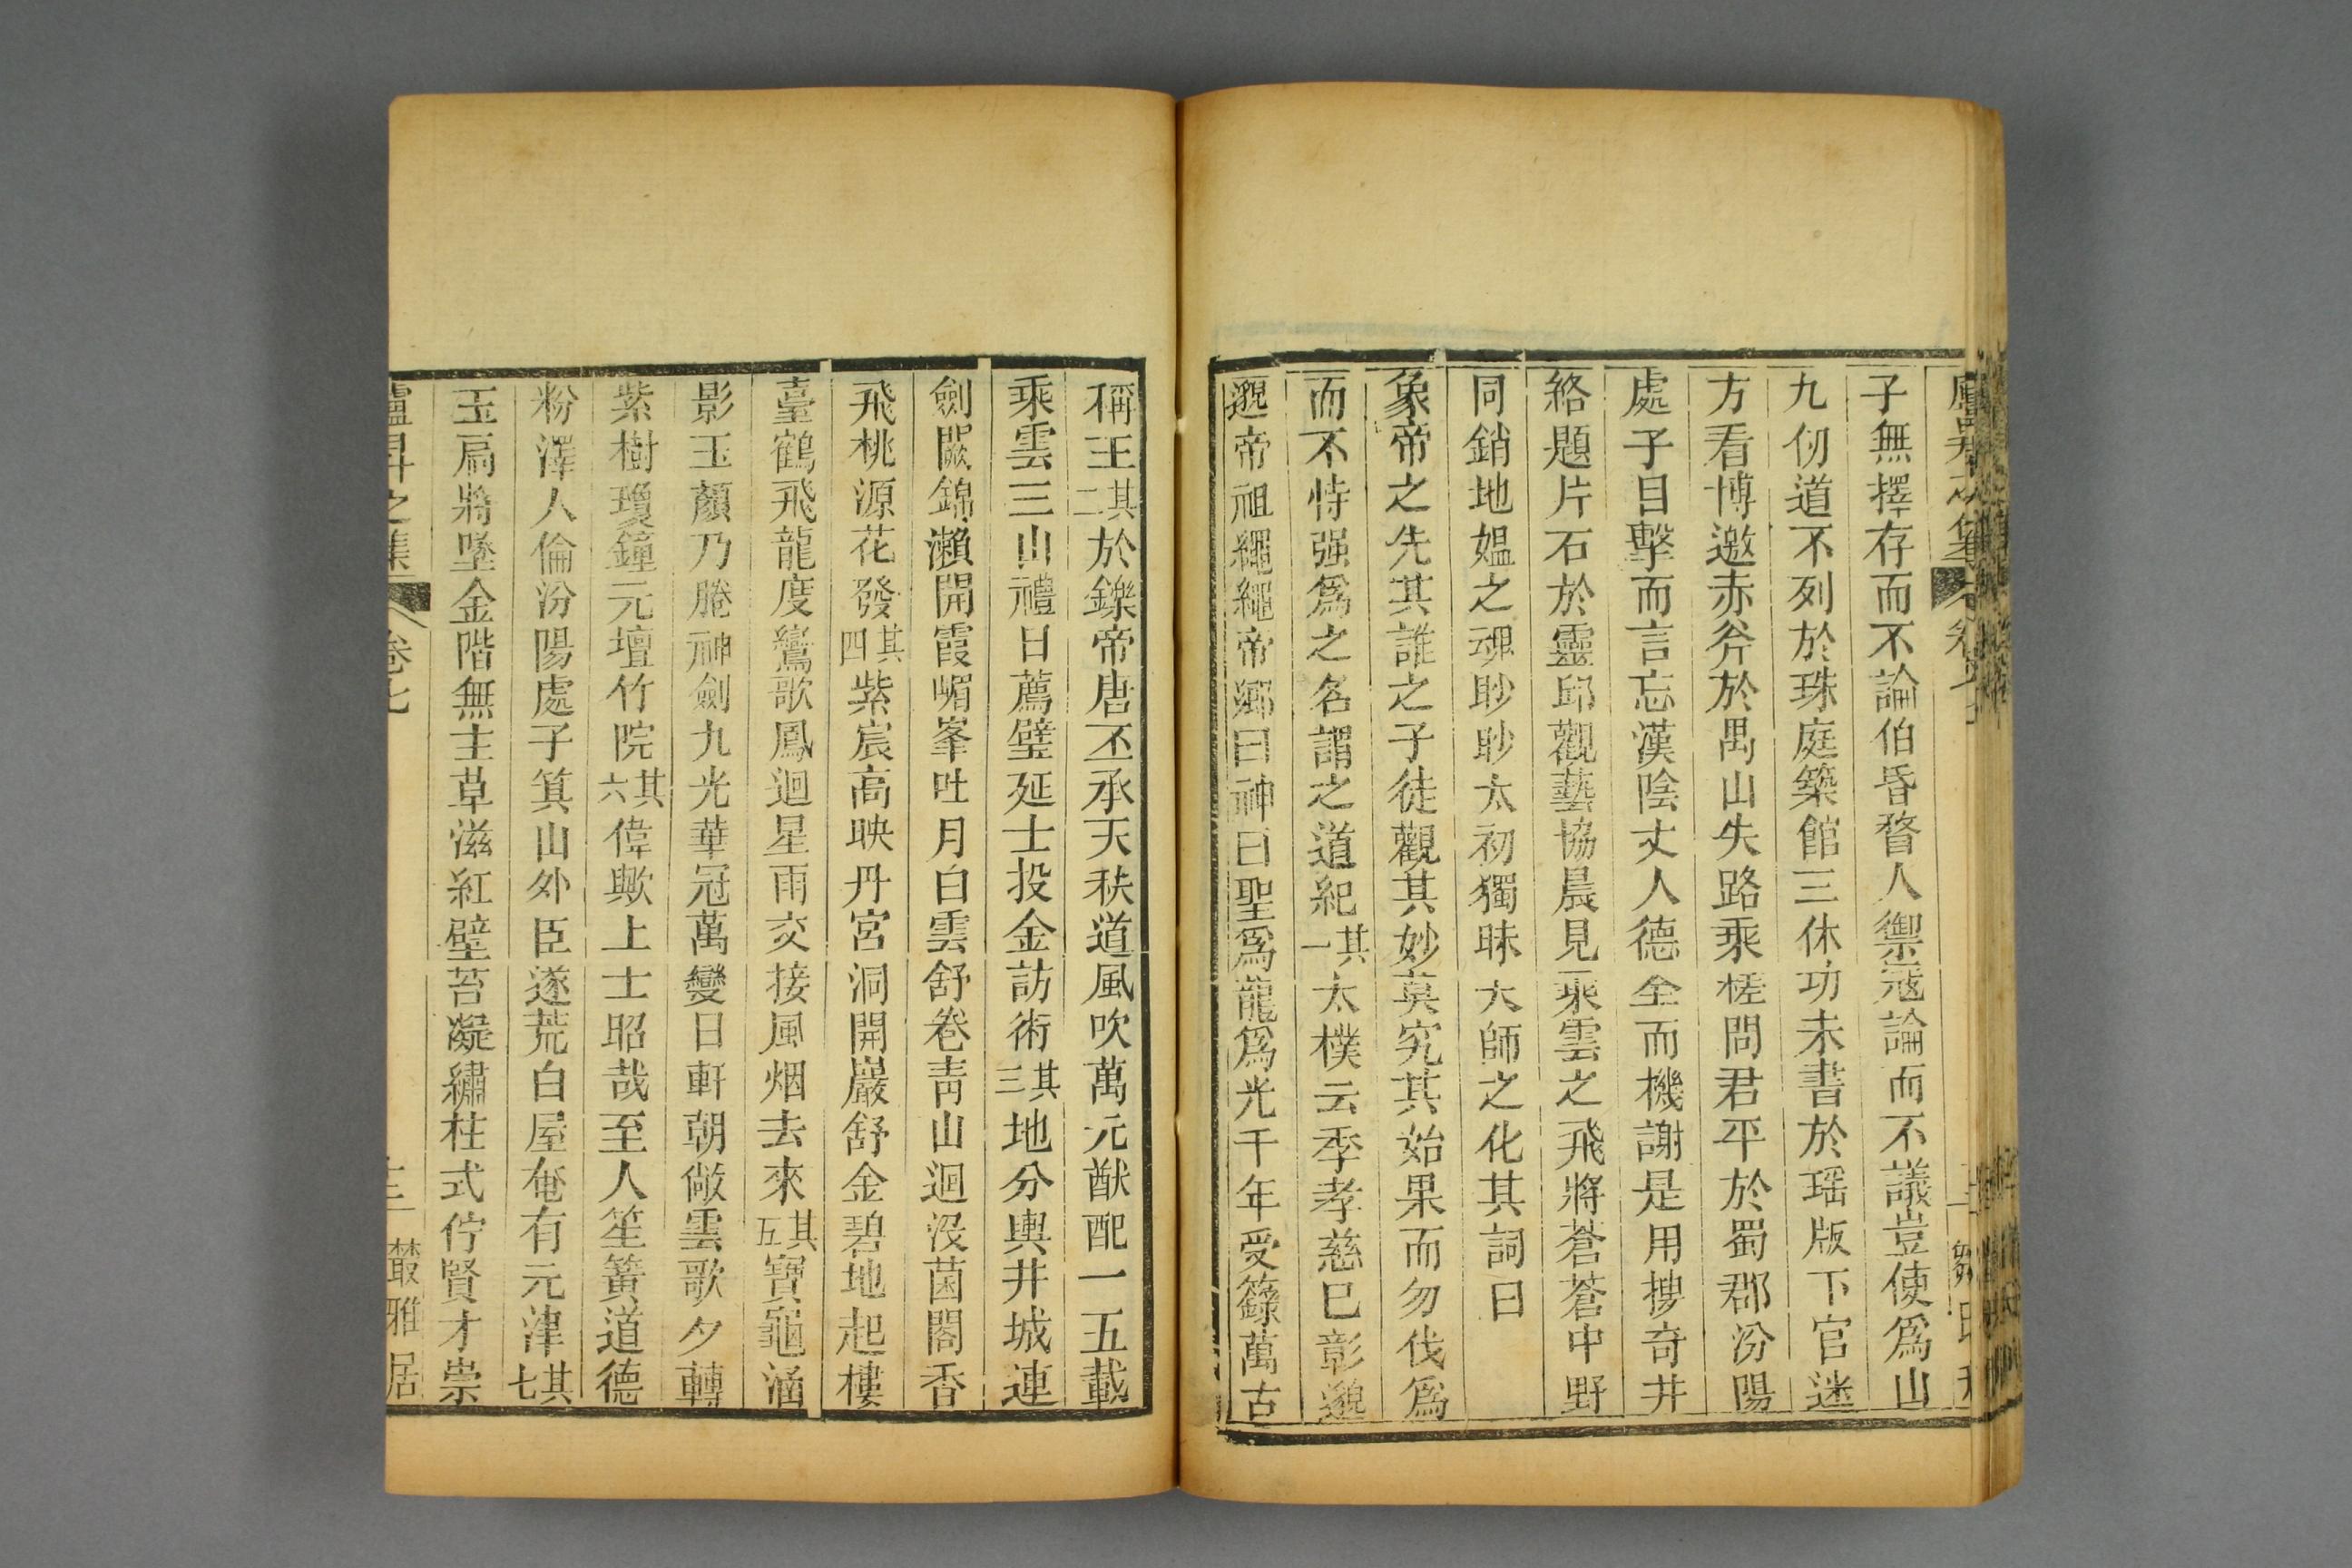 子無擇存而不論伯昏瞀人禦寇論而不議豈使爲山
九仞道不列於珠庭築館三休功未書於瑶版下官迷
方看博邀赤斧於禺山失路乘槎問君平於蜀郡汾陽
處子目擊而言忘漢陰丈人德全而機謝是用搜奇井
絡題片石於靈邱觀藝協晨見乘雲之飛將蒼蒼中野
同銷地媪之魂眇眇太初獨昧大師之化其詞曰
象帝之先其誰之子徒觀其妙莫究其始果而勿伐爲
而不恃强爲之名謂之道紀其一太樸云季孝慈已彰邈
邈帝祖繩繩帝鄉曰神曰聖爲龍爲光千年受籙萬古
稱王其二於鑠帝唐丕承天秩道風吹萬元猷配一五載
乘雲三山禮日薦璧延士投金訪術其三地分輿井城連
劍闕錦瀨開霞嵋峯吐月白雲舒卷靑山迴沒菌閣香
飛桃源花發其四紫宸高映丹宮洞開巖舒金碧地起樓
臺鶴飛龍度鸞歌鳳迴星雨交接風烟去來其五寶龜涵
影玉顏乃睠神劍九光華冠萬變日軒朝敞雲歌夕轉
紫樹瓊鐘元壇竹院其六偉歟上士昭哉至人笙簧道德
粉澤人倫汾陽處子箕山外臣遂荒白屋奄有元津其七
玉扃將墜金階無主草滋紅壁苔凝繡柱式佇賢才崇
盧昇之集 卷七 叢雅居